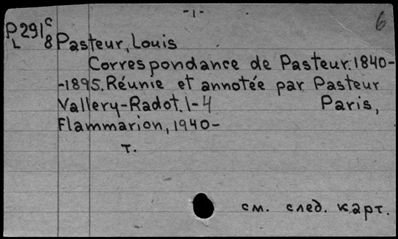 -1-
6
P291c
L 8
Pasteur, Louis
Correspondance de Pasteur. 1840-
-1895. Réunie et annotée par Pasteur
Vallery-Radot. 1-4 Paris,
Flammarion, 1940-
т.
см. след. карт.